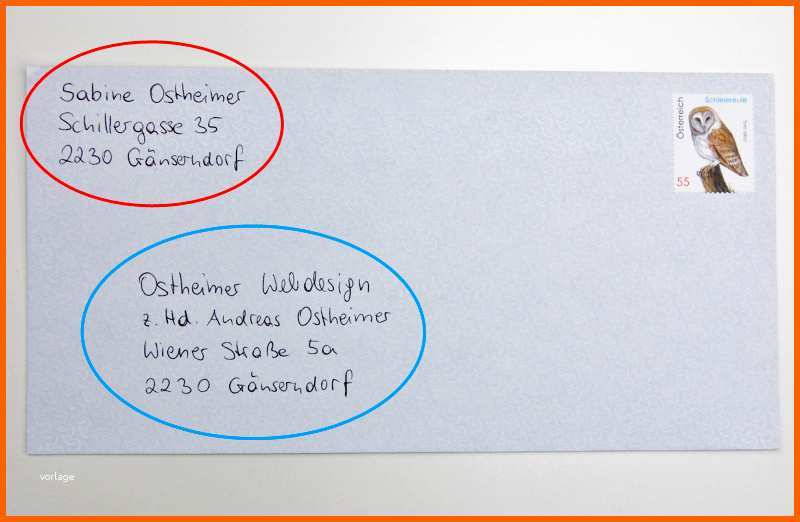 Sabine Ostheimer
Schillergasse 35
2230 Gänserndorf
Österreich
Schleiereule
55
Ostheimer Webdesign
z. Hd. Andreas Ostheimer
Wiener Straße 5a
2230 Gänserndorf
vorlage